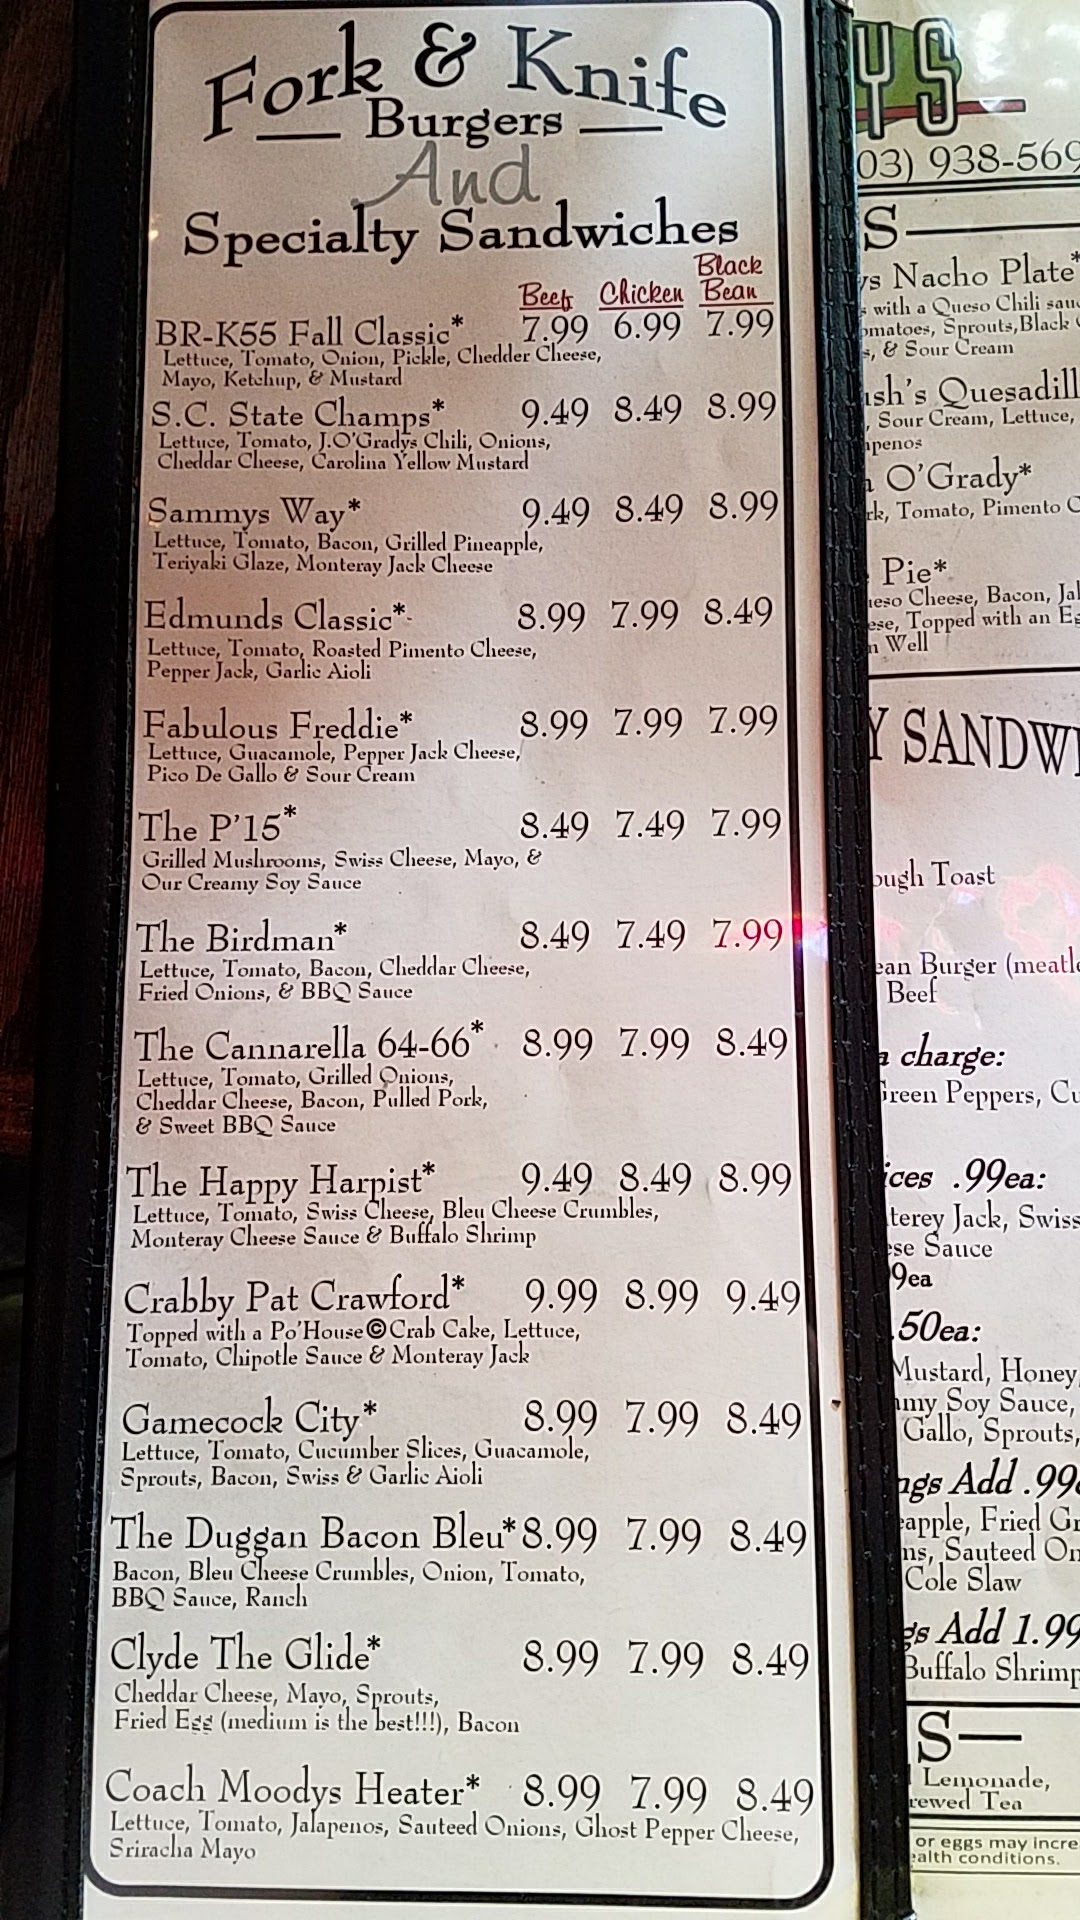 Fork & Knife
Burgers
And
Specialty Sandwiches
Beef Chicken Black Bean
BR-K55 Fall Classic* 7.99 6.99 7.99
Lettuce, Tomato, Onion, Pickle, Chedder Cheese,
Mayo, Ketchup, & Mustard
S.C. State Champs* 9.49 8.49 8.99
Lettuce, Tomato, J.O'Gradys Chili, Onions,
Cheddar Cheese, Carolina Yellow Mustard
Sammys Way* 9.49 8.49 8.99
Lettuce, Tomato, Bacon, Grilled Pineapple,
Teriyaki Glaze, Monteray Jack Cheese
Edmunds Classic* 8.99 7.99 8.49
Lettuce, Tomato, Roasted Pimento Cheese,
Pepper Jack, Garlic Aioli
Fabulous Freddie* 8.99 7.99 7.99
Lettuce, Guacamole, Pepper Jack Cheese,
Pico De Gallo & Sour Cream
The P'15* 8.49 7.49 7.99
Grilled Mushrooms, Swiss Cheese, Mayo, &
Our Creamy Soy Sauce
The Birdman* 8.49 7.49 7.99
Lettuce, Tomato, Bacon, Cheddar Cheese,
Fried Onions, & BBQ Sauce
The Cannarella 64-66* 8.99 7.99 8.49
Lettuce, Tomato, Grilled Onions,
Cheddar Cheese, Bacon, Pulled Pork,
& Sweet BBQ Sauce
The Happy Harpist* 9.49 8.49 8.99
Lettuce, Tomato, Swiss Cheese, Bleu Cheese Crumbles,
Monteray Cheese Sauce & Buffalo Shrimp
Crabby Pat Crawford* 9.99 8.99 9.49
Topped with a Po'House©Crab Cake, Lettuce,
Tomato, Chipotle Sauce & Monteray Jack
Gamecock City* 8.99 7.99 8.49
Lettuce, Tomato, Cucumber Slices, Guacamole,
Sprouts, Bacon, Swiss & Garlic Aioli
The Duggan Bacon Bleu* 8.99 7.99 8.49
Bacon, Bleu Cheese Crumbles, Onion, Tomato,
BBQ Sauce, Ranch
Clyde The Glide* 8.99 7.99 8.49
Cheddar Cheese, Mayo, Sprouts,
Fried Egg (medium is the best!!!), Bacon
Coach Moodys Heater* 8.99 7.99 8.49
Lettuce, Tomato, Jalapenos, Sauteed Onions, Ghost Pepper Cheese,
Sriracha Mayo
YS
03) 938-569
S
Nacho Plate*
with a Queso Chili
Sprouts, Black
& Sour Cream
Sour Cream, Lettuce,
O'Grady*
Tomato, Pimento
Pie*
Cheese, Bacon,
Topped with an
Well
Y SANDWI
Toast
Burger
Beef
charge:
Green Peppers,
.99ea:
Jack, Swiss
Sauce
9ea
.50ea:
Mustard, Honey
Soy Sauce,
Gallo, Sprouts,
Add .99
Fried
Sauteed
Cole Slaw
Add 1.99
Buffalo Shrimp
S
Lemonade,
Tea
or eggs may
conditions.